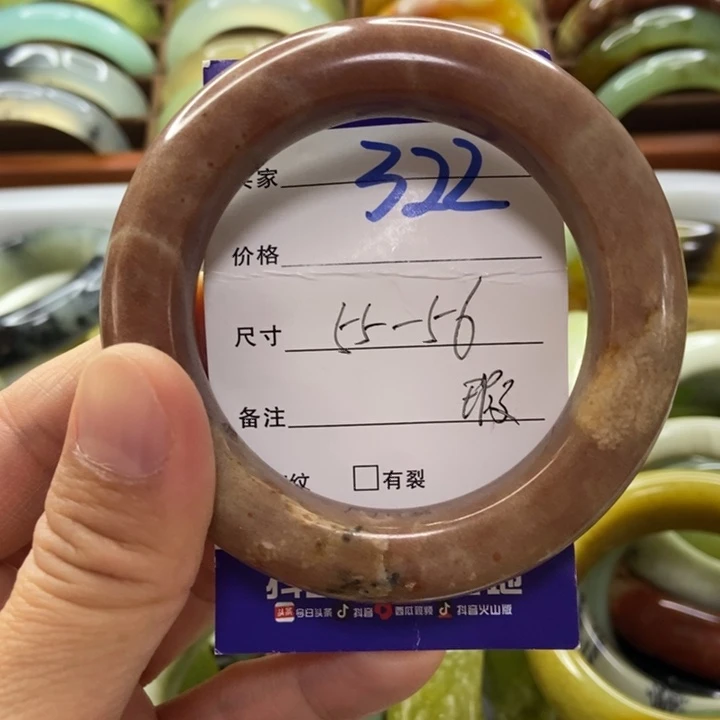 家 322
价格
尺寸 55-56
备注 瑕
纹 有裂
今日头条 抖音 西瓜视频 抖音火山版